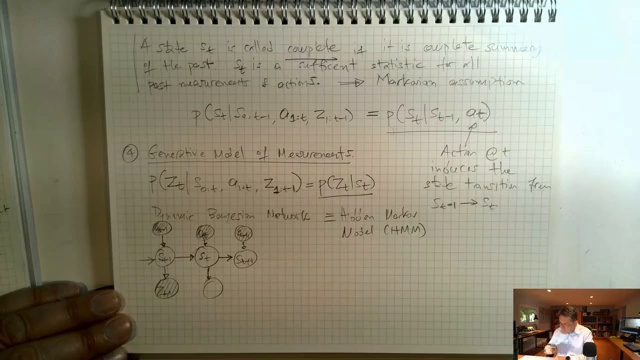 A state St is called complete if it is complete summary
of the past St is a sufficent statistic for all
past measurements & actions. ⟹ Markovian assumption
p(St | S0:t-1, a1:t, Z1:t-1) = p(St | St-1, at)
④ Generative Model of Measurements.
Action @ t
induces the
state transition from
St-1 → St
p(Zt | S0:t, a1:t, Z1:t-1) = p(Zt | St)
Dynamic Bayesian Network ≡ Hidden Markov
Model (HMM)
at-1 at at+1
St-1 St St+1
Zt-1